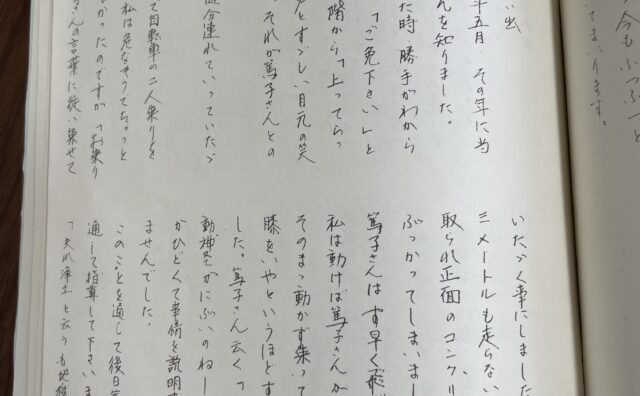 今もふふっと
てまいります。
い出
年五月 その年に当
んを知りました。
た時 勝手がわから
「ご免下さい」と
階から「上ってらっ
すゞしい目元の笑
それが篤子さんとの
随分連れていっていたゞ
て自転車の二人乗りを
私は危なそうでちょっと
かったのですが「お乗り
さんの言葉に従い乗せて
いたゞく事にしました
三メートルも走らない
取られ正面のコンクリ
ぶつかってしまいまし
篤子さんはす早く飛び
私は動けば篤子さんが
そのまゝ動かず乗って
膝をいやというほどす
した。篤子さん云く「
動神圣がにぶいのねー
がひどくて事情を説明す
ませんでした。
このことを通して後日篤
通して指導して下さいま
浄土と云うも地獄